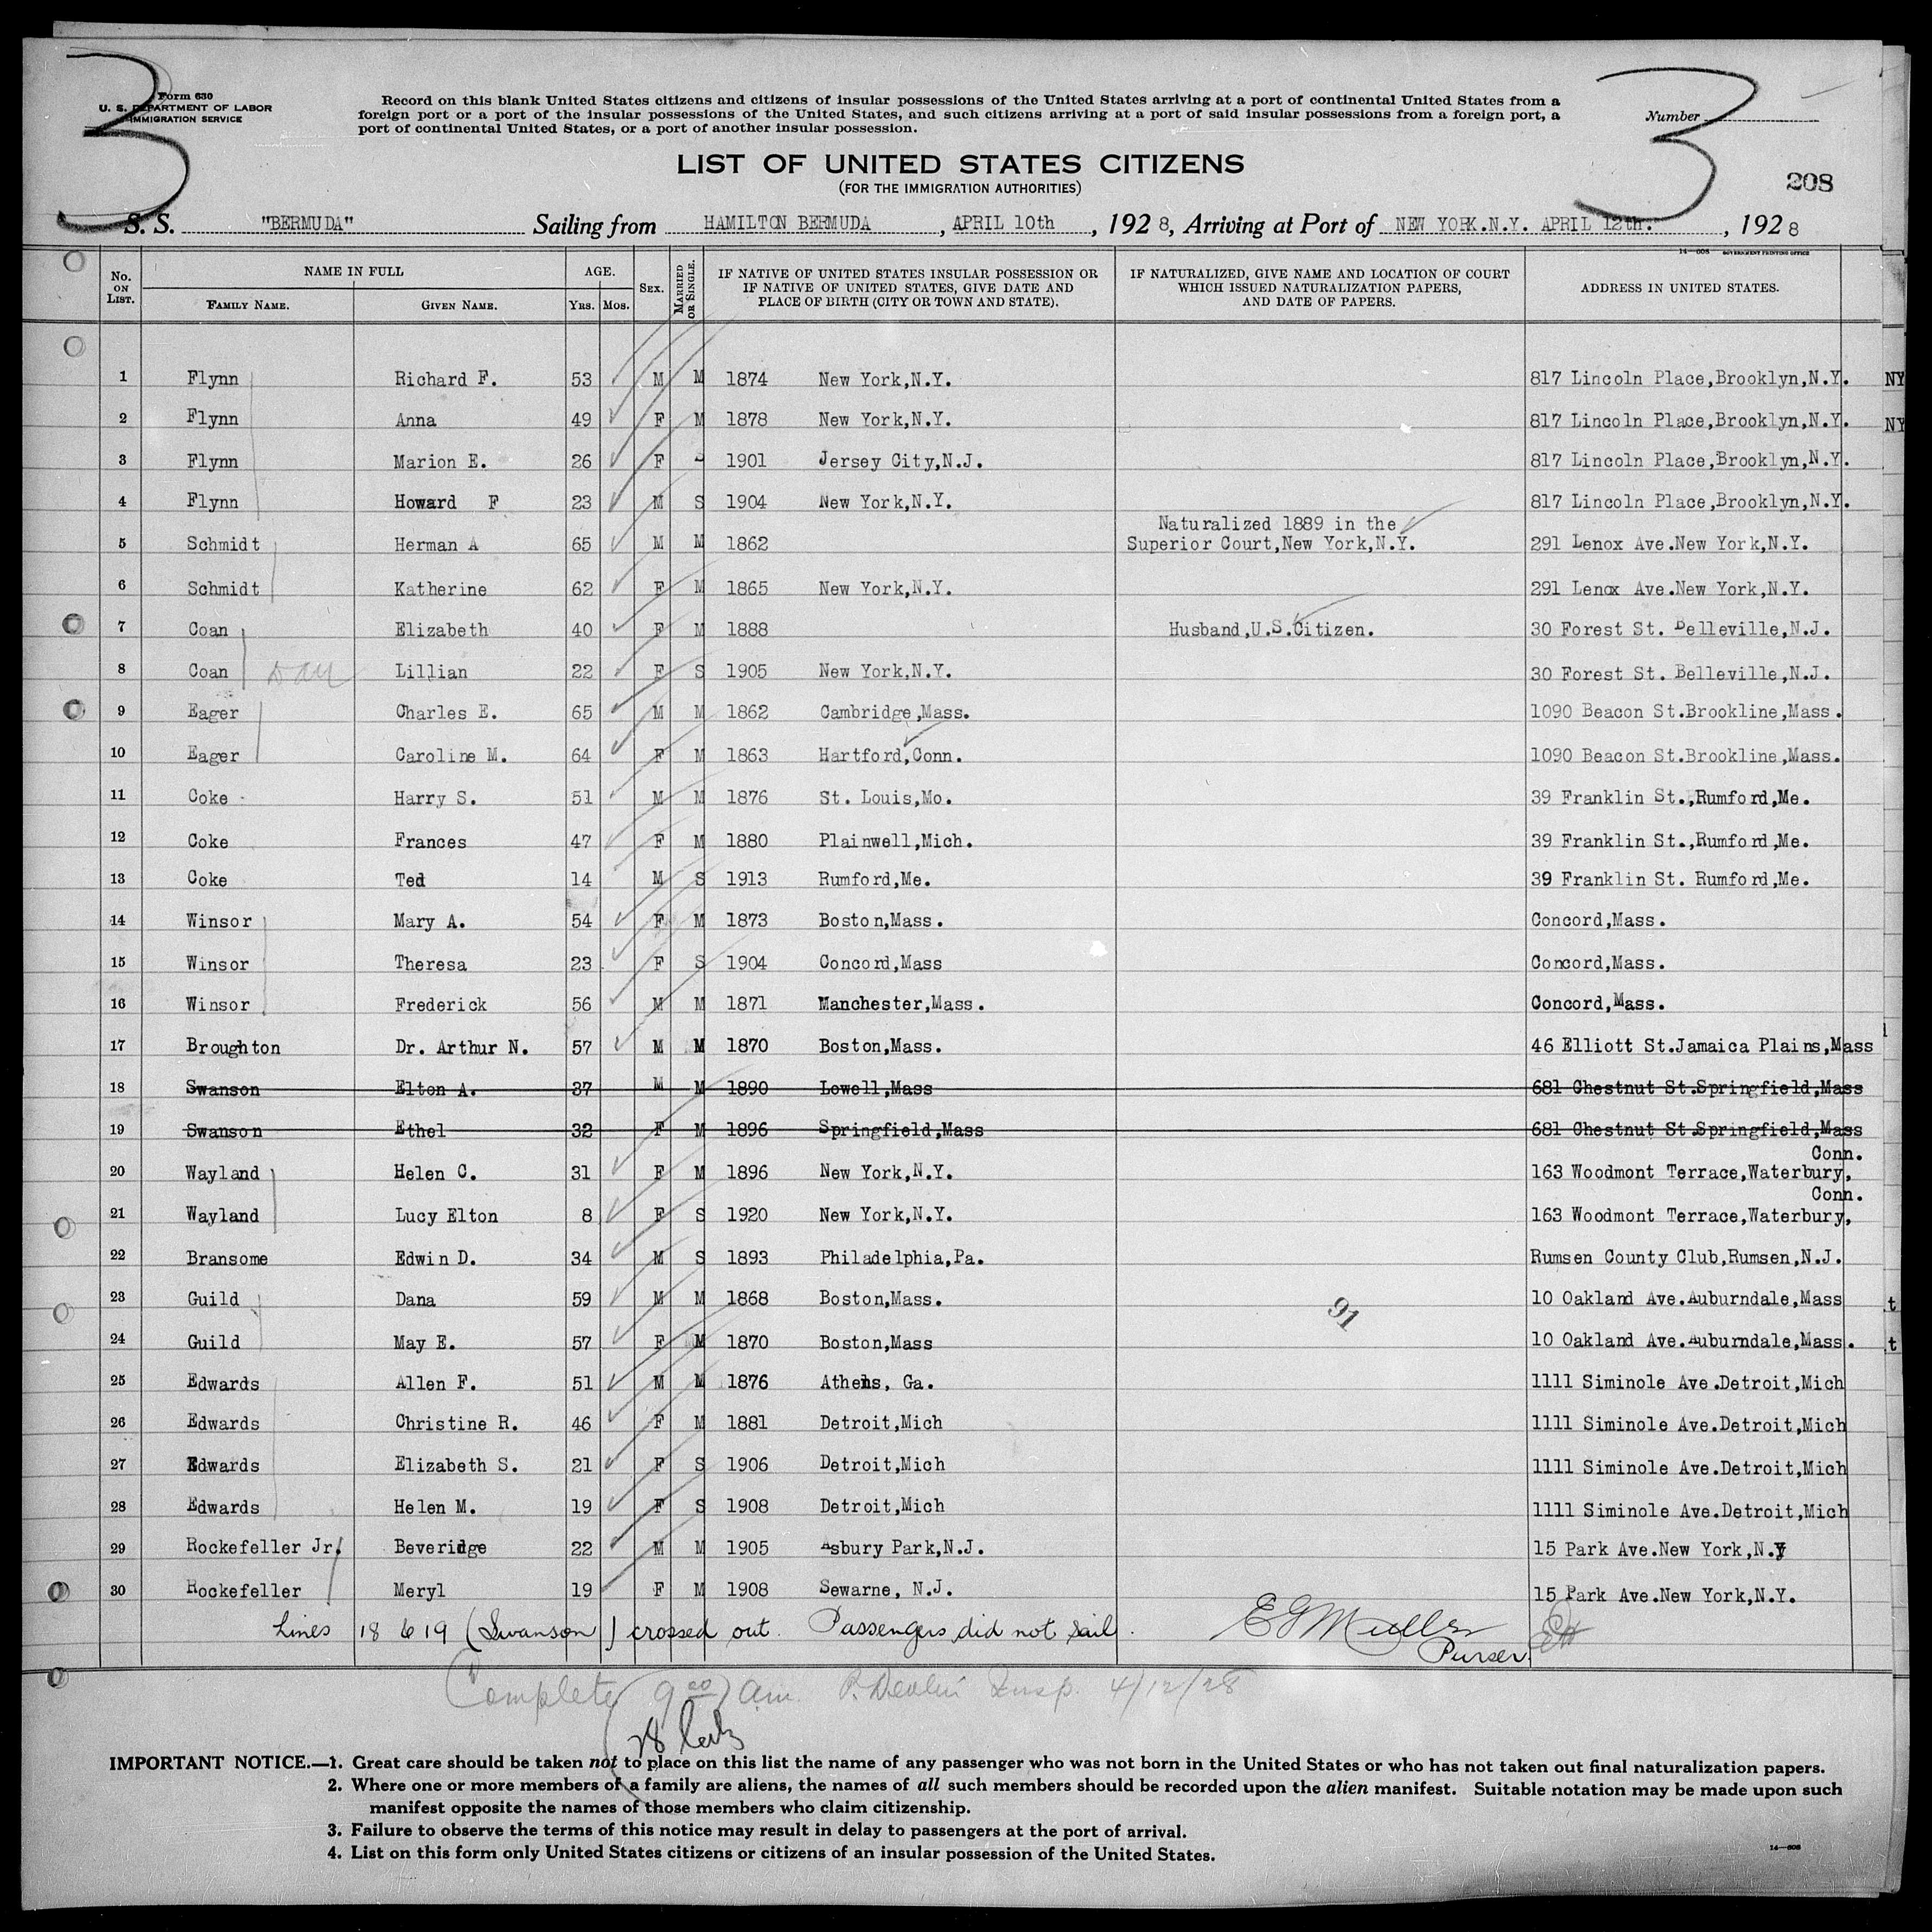 3
3
Form 630
U. S. DEPARTMENT OF LABOR
IMMIGRATION SERVICE
Record on this blank United States citizens and citizens of insular possessions of the United States arriving at a port of continental United States from a
foreign port or a port of the insular possessions of the United States, and such citizens arriving at a port of said insular possessions from a foreign port, a
port of continental United States, or a port of another insular possession.
Number
LIST OF UNITED STATES CITIZENS
(FOR THE IMMIGRATION AUTHORITIES)
208
S. S. "BERMUDA" Sailing from HAMILTON BERMUDA, APRIL 10th, 1928, Arriving at Port of NEW YORK.N.Y. APRIL 12th., 1928
14—608 GOVERNMENT PRINTING OFFICE
No. ON LIST. NAME IN FULL FAMILY NAME. GIVEN NAME. AGE. YRS. MOS. SEX. MARRIED OR SINGLE. IF NATIVE OF UNITED STATES INSULAR POSSESSION OR IF NATIVE OF UNITED STATES, GIVE DATE AND PLACE OF BIRTH (CITY OR TOWN AND STATE). IF NATURALIZED, GIVE NAME AND LOCATION OF COURT WHICH ISSUED NATURALIZATION PAPERS, AND DATE OF PAPERS. ADDRESS IN UNITED STATES.
1 Flynn Richard F. 53 M M 1874 New York,N.Y. 817 Lincoln Place,Brooklyn,N.Y. NY
2 Flynn Anna 49 F M 1878 New York,N.Y. 817 Lincoln Place,Brooklyn,N.Y. NY
3 Flynn Marion E. 26 F 1901 Jersey City,N.J. 817 Lincoln Place,Brooklyn,N.Y.
4 Flynn Howard F 23 M S 1904 New York,N.Y. 817 Lincoln Place,Brooklyn,N.Y.
Naturalized 1889 in the
5 Schmidt Herman A 65 M M 1862 Superior Court,New York,N.Y. 291 Lenox Ave.New York,N.Y.
6 Schmidt Katherine 62 F M 1865 New York,N.Y. 291 Lenox Ave.New York,N.Y.
7 Coan Elizabeth 40 F M 1888 Husband,U.S.Citizen. 30 Forest St. Belleville,N.J.
8 Coan Dau Lillian 22 F S 1905 New York,N.Y. 30 Forest St. Belleville,N.J.
9 Eager Charles E. 65 M M 1862 Cambridge,Mass. 1090 Beacon St.Brookline,Mass.
10 Eager Caroline M. 64 F M 1863 Hartford,Conn. 1090 Beacon St.Brookline,Mass.
11 Coke Harry S. 51 M M 1876 St. Louis,Mo. 39 Franklin St.,Rumford,Me.
12 Coke Frances 47 F M 1880 Plainwell,Mich. 39 Franklin St.,Rumford,Me.
13 Coke Ted 14 M S 1913 Rumford,Me. 39 Franklin St. Rumford,Me.
14 Winsor Mary A. 54 F M 1873 Boston,Mass. Concord,Mass.
15 Winsor Theresa 23 F S 1904 Concord,Mass Concord,Mass.
16 Winsor Frederick 56 M M 1871 Manchester,Mass. Concord,Mass.
17 Broughton Dr. Arthur N. 57 M M 1870 Boston,Mass. 46 Elliott St.Jamaica Plains,Mass
18 Swanson Elton A. 37 M M 1890 Lowell,Mass 681 Chestnut St.Springfield,Mass
19 Swanson Ethel 32 F M 1896 Springfield,Mass 681 Chestnut St.Springfield,Mass
Conn.
20 Wayland Helen C. 31 F M 1896 New York,N.Y. 163 Woodmont Terrace,Waterbury,
Conn.
21 Wayland Lucy Elton 8 F S 1920 New York,N.Y. 163 Woodmont Terrace,Waterbury,
22 Bransome Edwin D. 34 M S 1893 Philadelphia,Pa. Rumsen County Club,Rumsen,N.J.
23 Guild Dana 59 M M 1868 Boston,Mass. 10 Oakland Ave.Auburndale,Mass t
91
24 Guild May E. 57 F M 1870 Boston,Mass 10 Oakland Ave.Auburndale,Mass. t
25 Edwards Allen F. 51 M M 1876 Athens, Ga. 1111 Siminole Ave.Detroit,Mich
26 Edwards Christine R. 46 F M 1881 Detroit,Mich 1111 Siminole Ave.Detroit,Mich
27 Edwards Elizabeth S. 21 F S 1906 Detroit,Mich 1111 Siminole Ave.Detroit,Mich
28 Edwards Helen M. 19 F S 1908 Detroit,Mich 1111 Siminole Ave.Detroit,Mich
29 Rockefeller Jr. Beveridge 22 M M 1905 Asbury Park,N.J. 15 Park Ave.New York,N.Y
30 Rockefeller Meryl 19 F M 1908 Sewarne, N.J. 15 Park Ave.New York,N.Y.
Lines 18 & 19 (Swanson) crossed out. Passengers did not sail. E G Muller
Purser.
Complete 9 00 am. P. Devlin Insp. 4/12/28
IMPORTANT NOTICE.—1. Great care should be taken not to place on this list the name of any passenger who was not born in the United States or who has not taken out final naturalization papers.
2. Where one or more members of a family are aliens, the names of all such members should be recorded upon the alien manifest. Suitable notation may be made upon such
manifest opposite the names of those members who claim citizenship.
3. Failure to observe the terms of this notice may result in delay to passengers at the port of arrival.
4. List on this form only United States citizens or citizens of an insular possession of the United States.
14—608